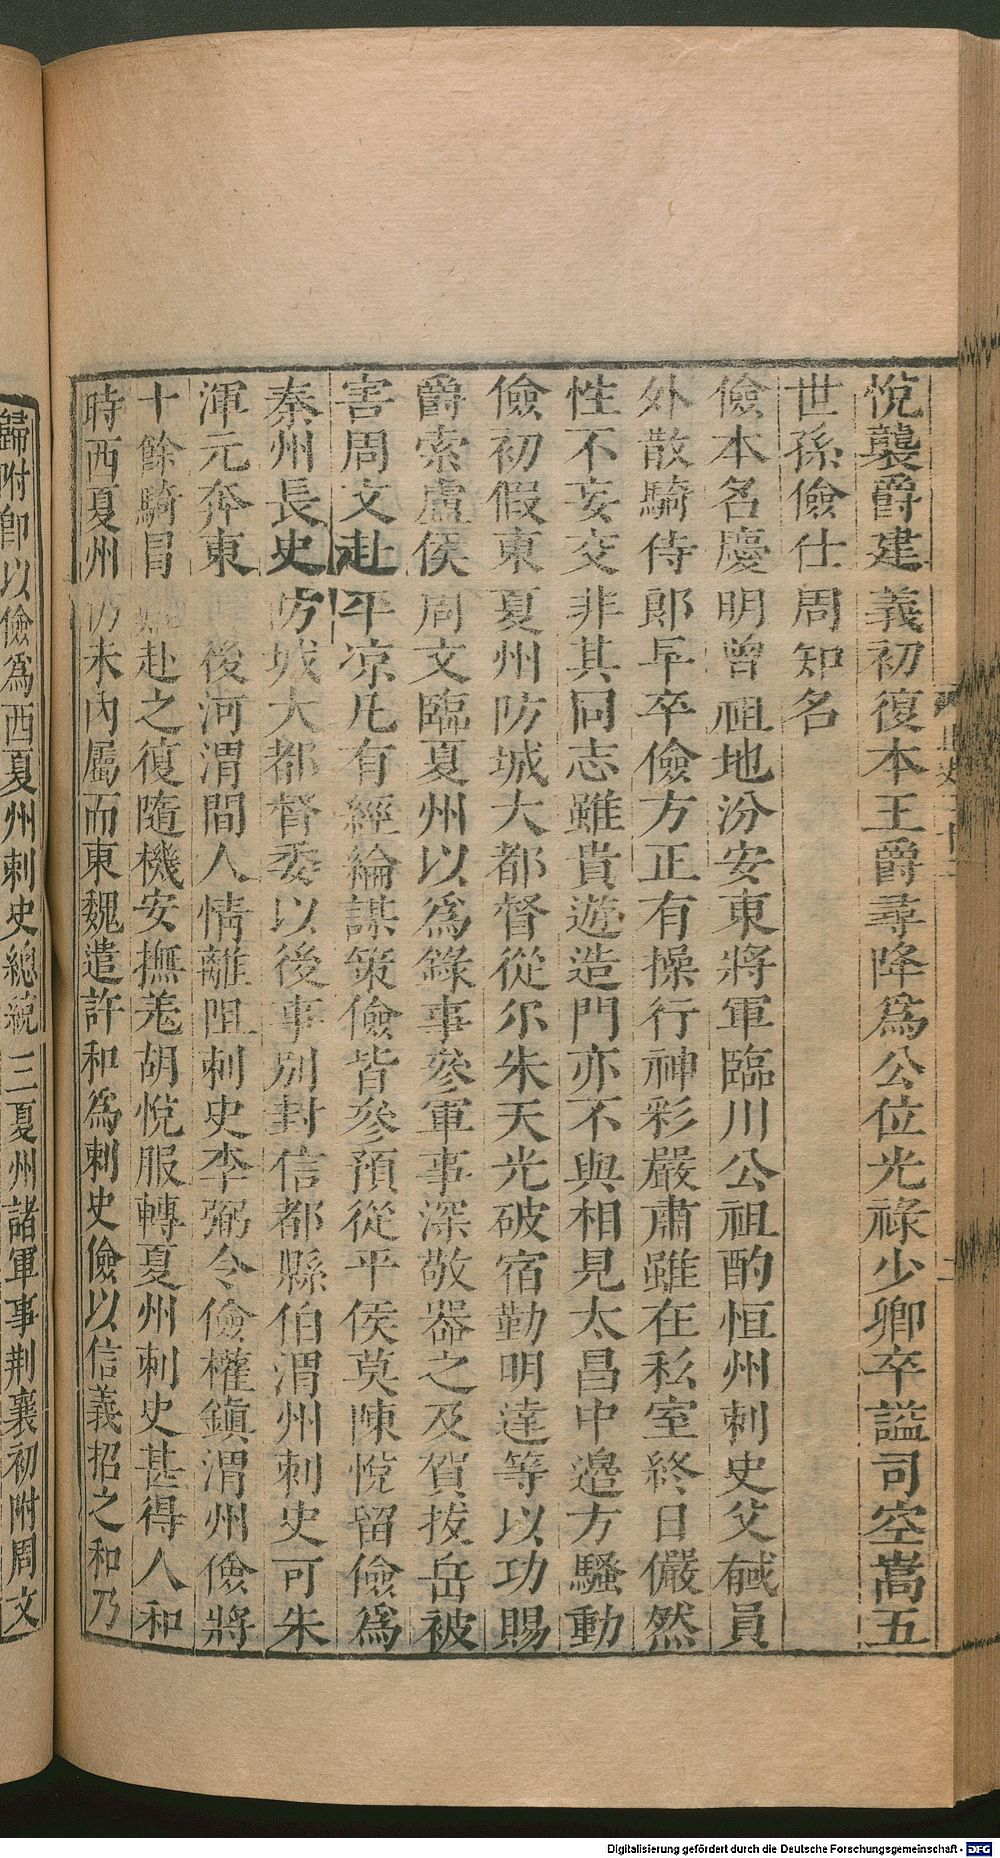 悅襲爵建義初復本王爵尋降爲公位光祿少卿卒謚司空嵩五
世孫儉仕周知名
儉本名慶明曾祖地汾安東將軍臨川公祖酌恒州刺史父戫員
外散騎侍郎早卒儉方正有操行神彩嚴肅雖在私室終日儼然
性不妄交非其同志雖貴遊造門亦不與相見太昌中邊方騷動
儉初假東夏州防城大都督從尒朱天光破宿勤明達等以功賜
爵索盧侯周文臨夏州以爲錄事參軍事深敬器之及賀拔岳被
害周文赴平凉凡有經綸謀策儉皆參預從平侯莫陳悅留儉爲
秦州長史防城大都督委以後事別封信都縣伯渭州刺史可朱
渾元奔東後河渭間人情離阻刺史李弼令儉權鎭渭州儉將
十餘騎冒赴之復隨機安撫羌胡悅服轉夏州刺史甚得人和
時西夏州仍未內屬而東魏遣許和爲刺史儉以信義招之和乃
歸附卽以儉爲西夏州刺史總統三夏州諸軍事荆襄初附周文
Digitalisierung gefördert durch die Deutsche Forschungsgemeinschaft - DFG